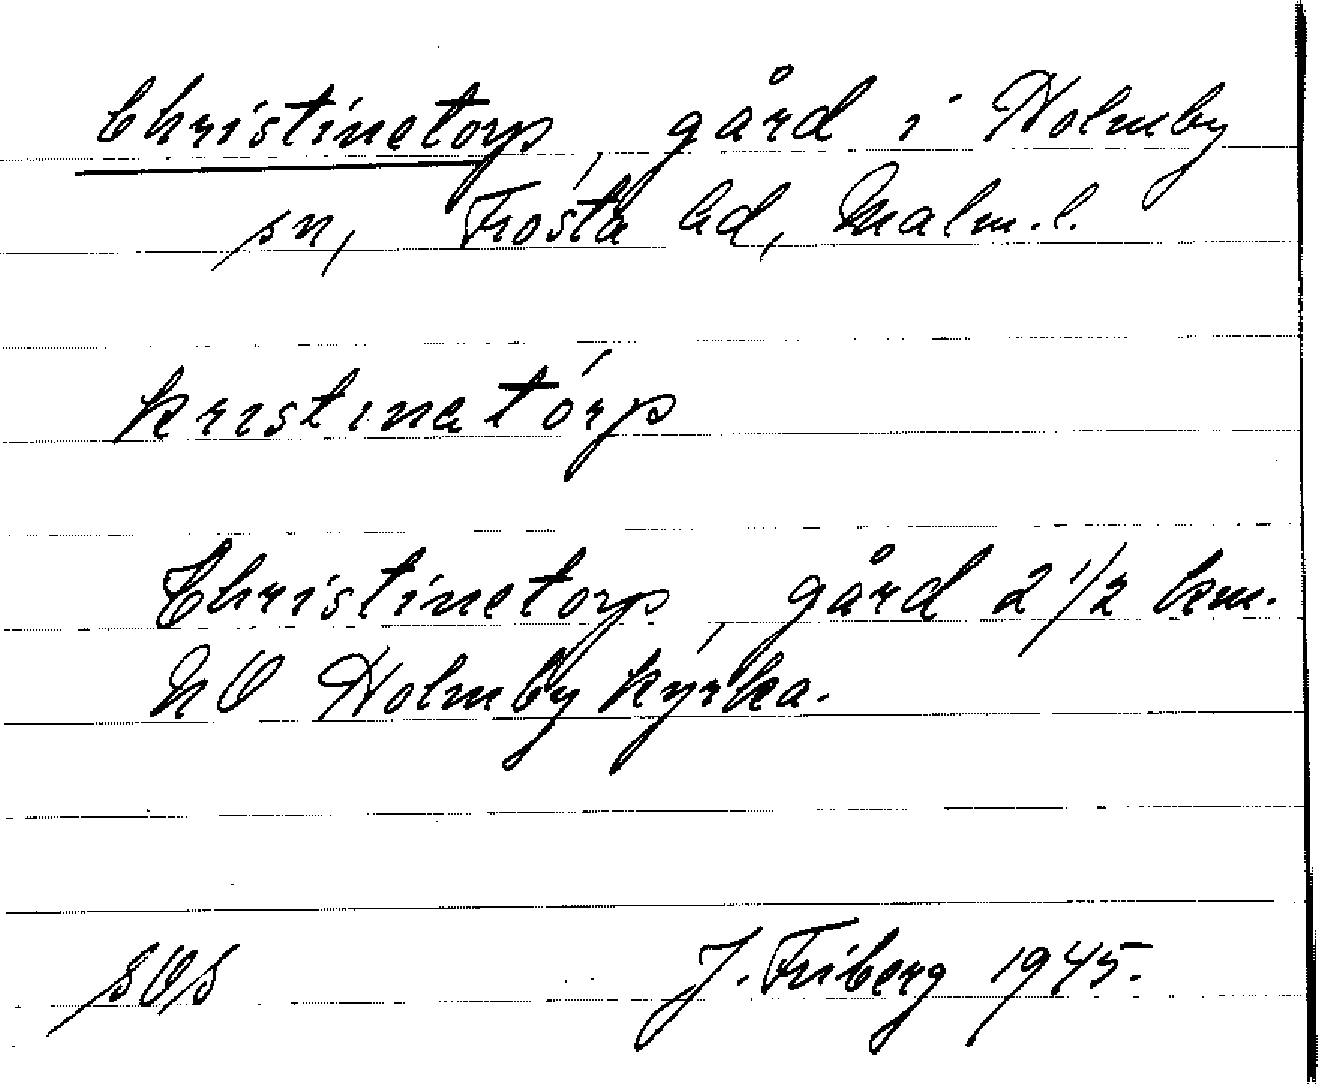 Christinetorp, gård i Holmby
sn, Frosta hd, Malm. l.
kristinatórp
Christinetorp, gård 2 1/2 km.
NO Holmby kyrka.
SOS J. Friberg 1945.